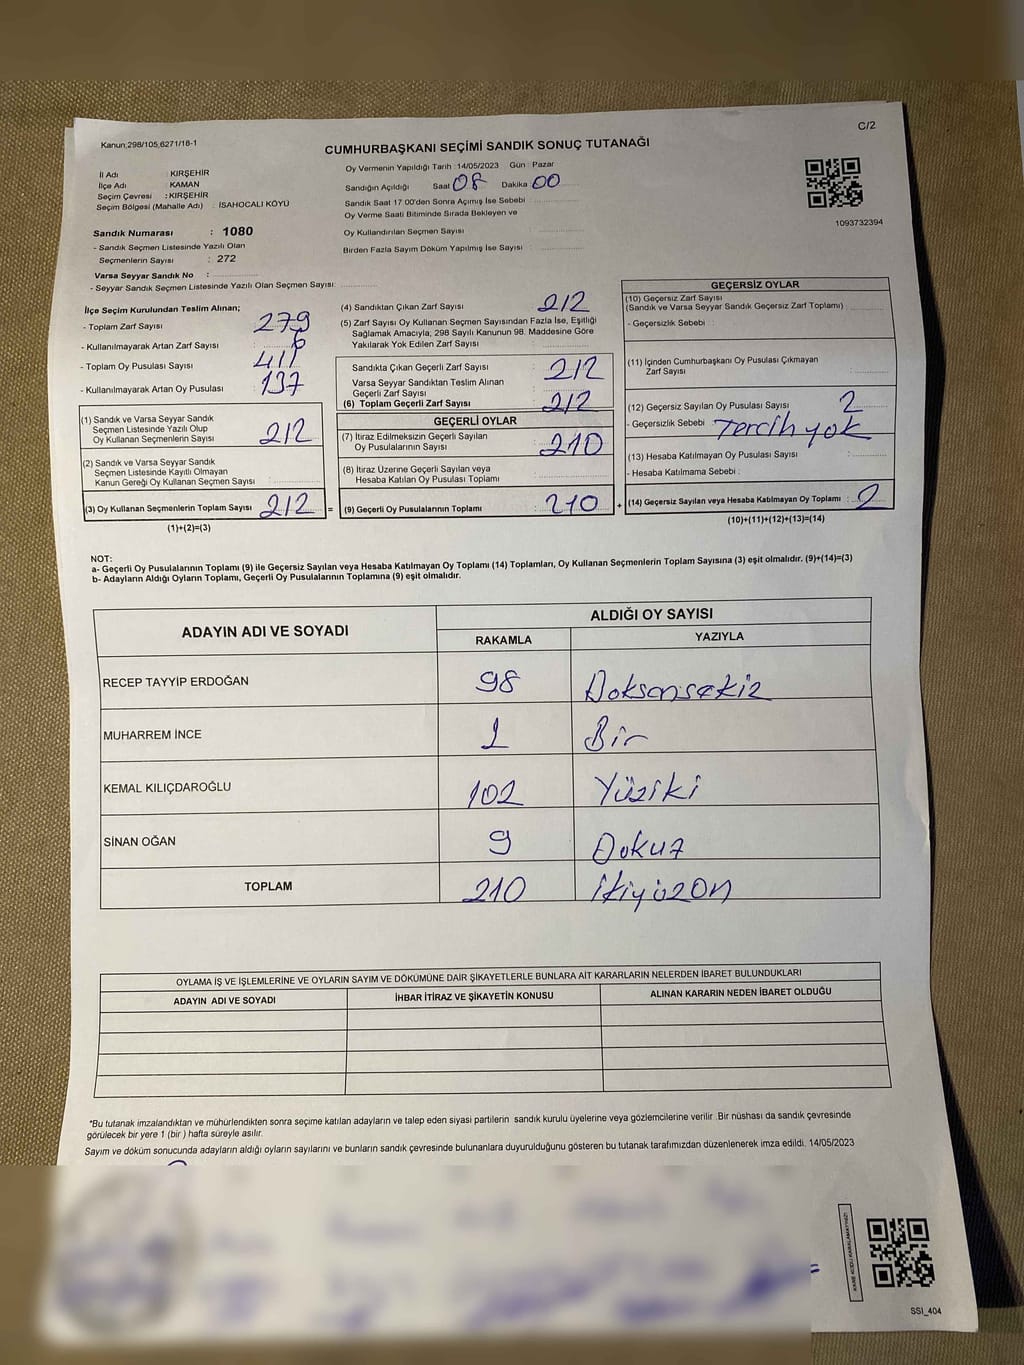 Kanun;298/105,6271/18-1
C/2
CUMHURBAŞKANI SEÇİMİ SANDIK SONUÇ TUTANAĞI
İl Adı : KIRŞEHİR
İlçe Adı : KAMAN
Seçim Çevresi : KIRŞEHİR
Seçim Bölgesi (Mahalle Adı) : İSAHOCALI KÖYÜ
Oy Vermenin Yapıldığı Tarih :14/05/2023 Gün : Pazar
Sandığın Açıldığı Saat 08 Dakika 00
Sandık Saat 17.00'den Sonra Açımış İse Sebebi :
Oy Verme Saati Bitiminde Sırada Bekleyen ve
Oy Kullandırılan Seçmen Sayısı :
Birden Fazla Sayım Döküm Yapılmış İse Sayısı :
1093732394
Sandık Numarası : 1080
- Sandık Seçmen Listesinde Yazılı Olan
Seçmenlerin Sayısı : 272
Varsa Seyyar Sandık No :
- Seyyar Sandık Seçmen Listesinde Yazılı Olan Seçmen Sayısı:
İlçe Seçim Kurulundan Teslim Alınan;
- Toplam Zarf Sayısı : 279
- Kullanılmayarak Artan Zarf Sayısı :
- Toplam Oy Pusulası Sayısı :
- Kullanılmayarak Artan Oy Pusulası : 137
(1) Sandık ve Varsa Seyyar Sandık
Seçmen Listesinde Yazılı Olup
Oy Kullanan Seçmenlerin Sayısı : 212
(2) Sandık ve Varsa Seyyar Sandık
Seçmen Listesinde Kayıtlı Olmayan
Kanun Gereği Oy Kullanan Seçmen Sayısı :
(3) Oy Kullanan Seçmenlerin Toplam Sayısı : 212 =
(1)+(2)=(3)
(4) Sandıktan Çıkan Zarf Sayısı : 212
(5) Zarf Sayısı Oy Kullanan Seçmen Sayısından Fazla İse, Eşitliği
Sağlamak Amacıyla, 298 Sayılı Kanunun 98. Maddesine Göre
Yakılarak Yok Edilen Zarf Sayısı :
Sandıkta Çıkan Geçerli Zarf Sayısı : 212
Varsa Seyyar Sandıktan Teslim Alınan
Geçerli Zarf Sayısı :
(6) Toplam Geçerli Zarf Sayısı : 212
GEÇERLİ OYLAR
(7) İtiraz Edilmeksizin Geçerli Sayılan
Oy Pusulalarının Sayısı : 210
(8) İtiraz Üzerine Geçerli Sayılan veya
Hesaba Katılan Oy Pusulası Toplamı :
(9) Geçerli Oy Pusulalarının Toplamı : 210 +
GEÇERSİZ OYLAR
(10) Geçersiz Zarf Sayısı
(Sandık ve Varsa Seyyar Sandık Geçersiz Zarf Toplamı) :
- Geçersizlik Sebebi :
(11) İçinden Cumhurbaşkanı Oy Pusulası Çıkmayan
Zarf Sayısı :
(12) Geçersiz Sayılan Oy Pusulası Sayısı : 2
- Geçersizlik Sebebi : Tercih yok
(13) Hesaba Katılmayan Oy Pusulası Sayısı :
- Hesaba Katılmama Sebebi :
(14) Geçersiz Sayılan veya Hesaba Katılmayan Oy Toplamı : 2
(10)+(11)+(12)+(13)=(14)
NOT:
a- Geçerli Oy Pusulalarının Toplamı (9) ile Geçersiz Sayılan veya Hesaba Katılmayan Oy Toplamı (14) Toplamları, Oy Kullanan Seçmenlerin Toplam Sayısına (3) eşit olmalıdır. (9)+(14)=(3)
b- Adayların Aldığı Oyların Toplamı, Geçerli Oy Pusulalarının Toplamına (9) eşit olmalıdır.
ADAYIN ADI VE SOYADI
ALDIĞI OY SAYISI
RAKAMLA YAZIYLA
RECEP TAYYİP ERDOĞAN 98 Doksansekiz
MUHARREM İNCE 1 Bir
KEMAL KILIÇDAROĞLU 102 Yüziki
SİNAN OĞAN 9 Dokuz
TOPLAM 210 İkiyüzon
OYLAMA İŞ VE İŞLEMLERİNE VE OYLARIN SAYIM VE DÖKÜMÜNE DAİR ŞİKAYETLERLE BUNLARA AİT KARARLARIN NELERDEN İBARET BULUNDUKLARI
ADAYIN ADI VE SOYADI İHBAR İTİRAZ VE ŞİKAYETİN KONUSU ALINAN KARARIN NEDEN İBARET OLDUĞU
*Bu tutanak imzalandıktan ve mühürlendikten sonra seçime katılan adayların ve talep eden siyasi partilerin sandık kurulu üyelerine veya gözlemcilerine verilir. Bir nüshası da sandık çevresinde
görülecek bir yere 1 (bir ) hafta süreyle asılır.
Sayım ve döküm sonucunda adayların aldığı oyların sayılarını ve bunların sandık çevresinde bulunanlara duyurulduğunu gösteren bu tutanak tarafımızdan düzenlenerek imza edildi. 14/05/2023
KARE KODU KARALAMAYINIZ!
SSI_404